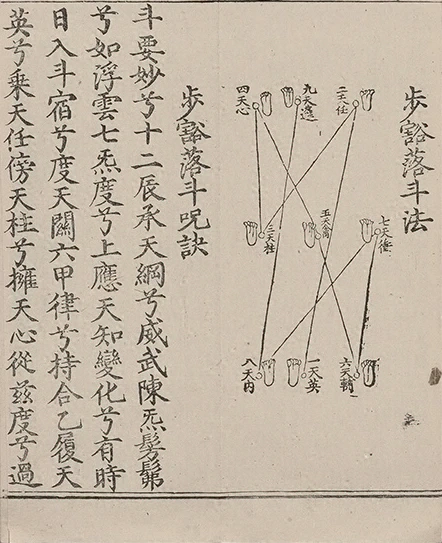 步豁落斗法
二天任
九天蓬
四天心
七天
五天禽
三天柱
六天輔
一天英
八天内
步豁落斗呪訣
斗要妙兮十二辰承天綱兮威武陳炁髣髴
兮如浮雲七炁度兮上應天知變化兮有時
日入斗宿兮度天關六甲律兮持合乙履天
英兮乘天任傍天柱兮擁天心從茲度兮過